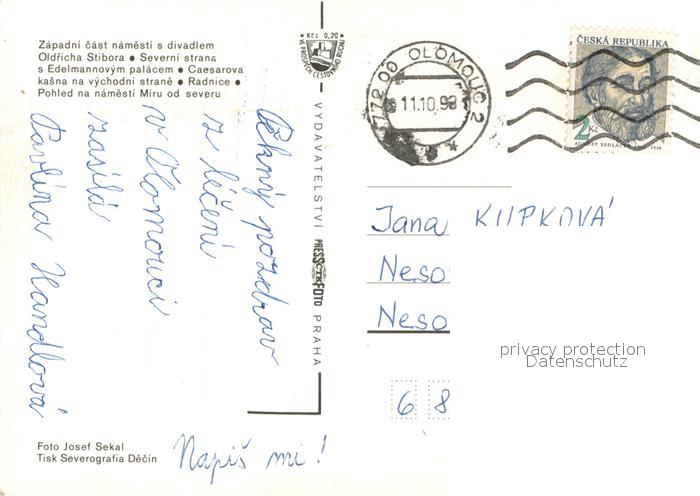 Západní část náměstí s divadlem
Oldřicha Stibora ● Severní strana
s Edelmannovým palácem ● Caesarova
kašna na východní straně ● Radnice ●
Pohled na náměstí Míru od severu
Kčs 0,20
VE PROSPĚCH CESTOVNÍHO RUCHU
772 00 OLOMOUC 2
11.10.98
ČESKÁ REPUBLIKA
2 Kč
AUGUST SEDLÁČEK
Pěkný pozdrav
z léčení
v Olomouci
zasílá
Pavlína Handlová
Napiš mi!
VYDAVATELSTVÍ PRESSFOTO PRAHA
Jana
Neso
Neso
68
privacy protection
Datenschutz
Foto Josef Sekal
Tisk Severografia Děčín